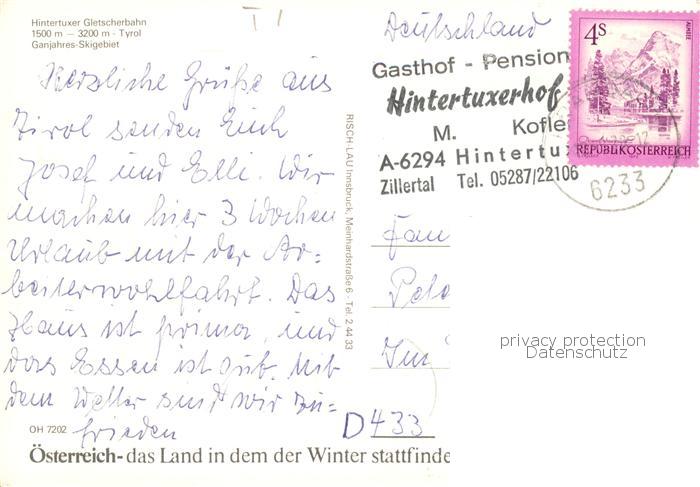 Hintertuxer Gletscherbahn
1500 m — 3200 m - Tyrol
Ganjahres-Skigebiet
Herzliche Grüße aus
Tirol senden Euch
Josef und Elle. Wir
machen hier 3 Wochen
Urlaub mit der Ar=
beiterwohlfahrt. Das
Haus ist prima, und
das Essen ist gut. Mit
dem Wetter sind wir zu=
frieden
OH 7202
Österreich- das Land in dem der Winter stattfinde
RISCH-LAU Innsbruck, Meinhardstraße 6 · Tel. 2 44 33
Deutschland
Gasthof - Pension
Hintertuxerhof
M. Kofle
A-6294 Hintertux
Zillertal Tel. 05287/22106
4S
ALMSEE
REPUBLIK ÖSTERREICH
6233
Fam
Pete
Im
D433
privacy protection
Datenschutz